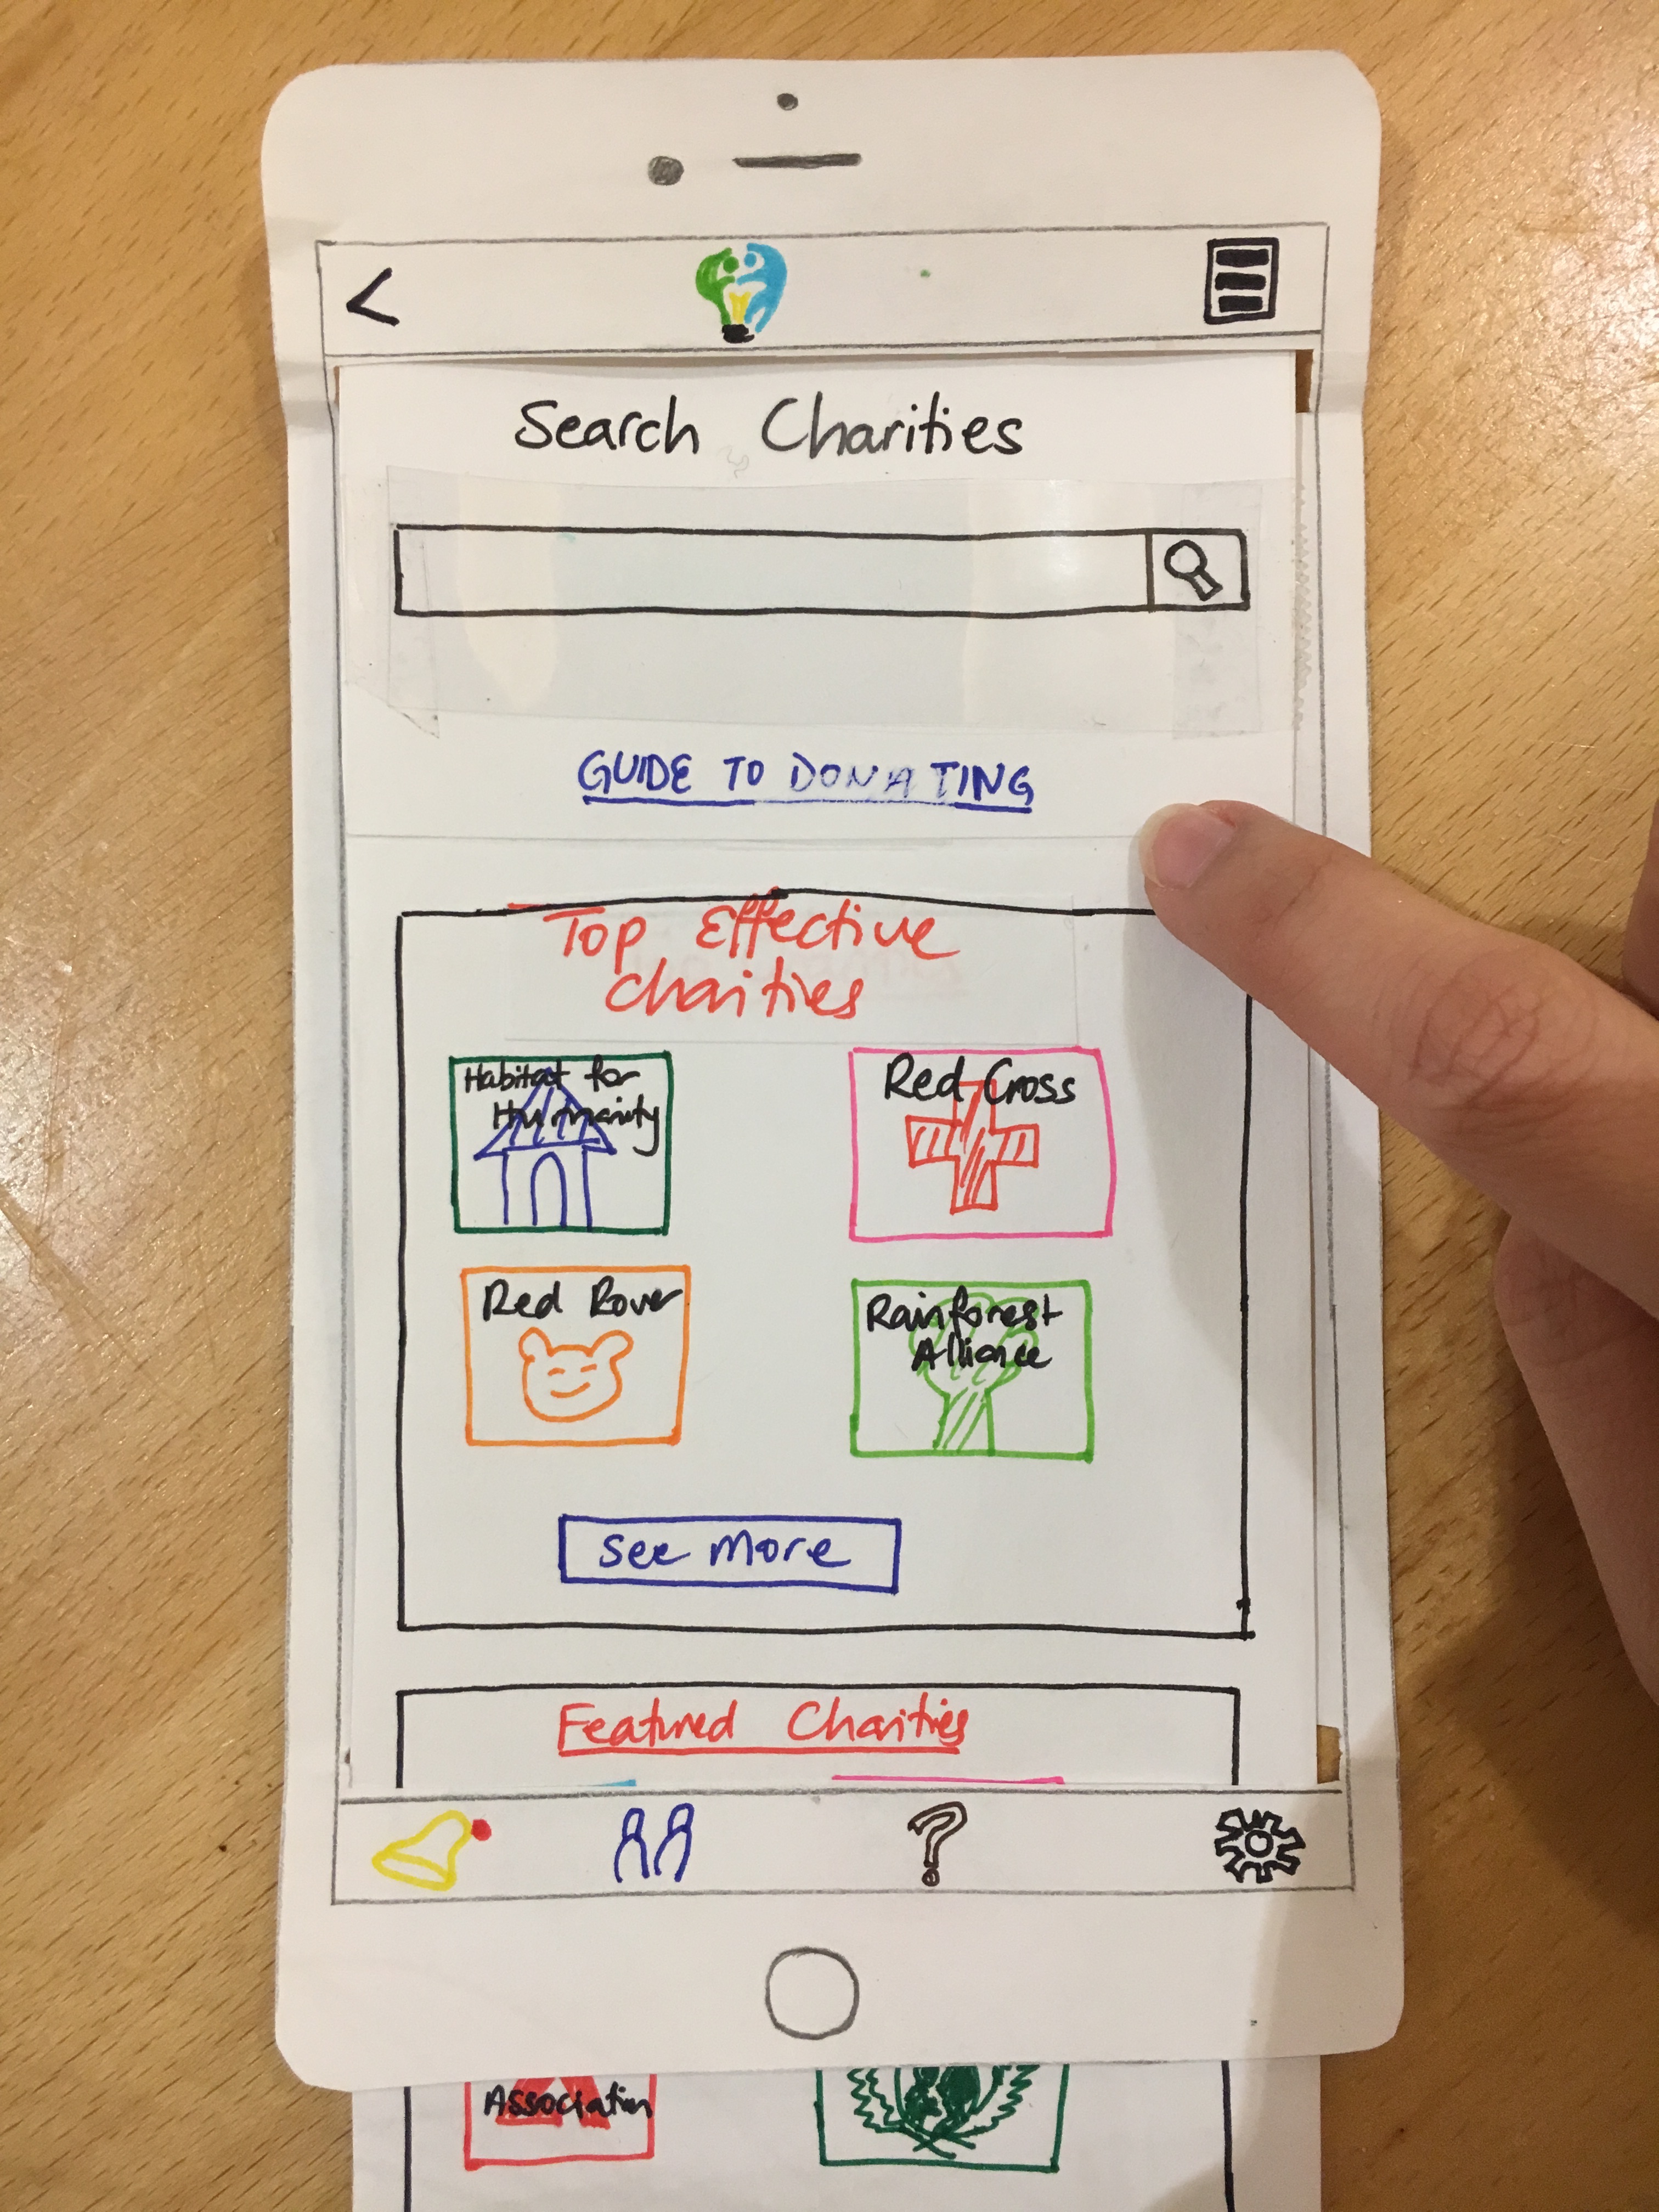 Search Charities
GUIDE TO DONATING
Top Effective
Charities
Habitat for
Humanity
Red Cross
Red Rover
Rainforest
Alliance
see more
Featured Charities
Association